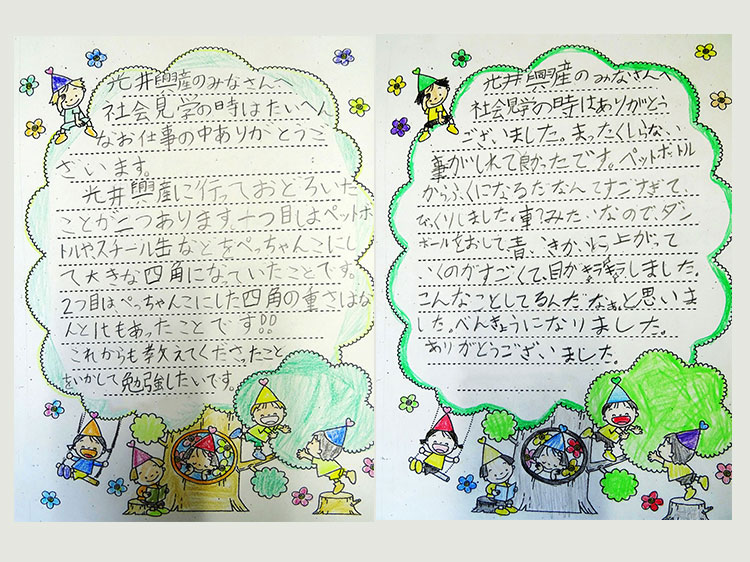 光井興産のみなさんへ
社会見学の時はたいへん
なお仕事の中ありがとうご
ざいます。
光井興産に行っておどろいた
ことが二つあります。一つ目はペットボ
トルやスチール缶などをぺっちゃんこにし
て大きな四角になっていたことです。
2つ目はぺっちゃんこにした四角の重さはな
んと1tもあったことです!!
これからも教えてくださったこと
をいかして勉強したいです。
光井興産のみなさんへ
社会見学の時はありがとう
ございました。まったくしらない
事がしれて良かったです。ペットボトル
からふくになるだなんてすごすぎて、
びっくりしました。車みたいなので、ダン
ボールをおして
上がって
いくのがすごくて、目がキラキラしました。
こんなことしてるんだなぁと思いま
した。べんきょうになりました。
ありがとうございました。